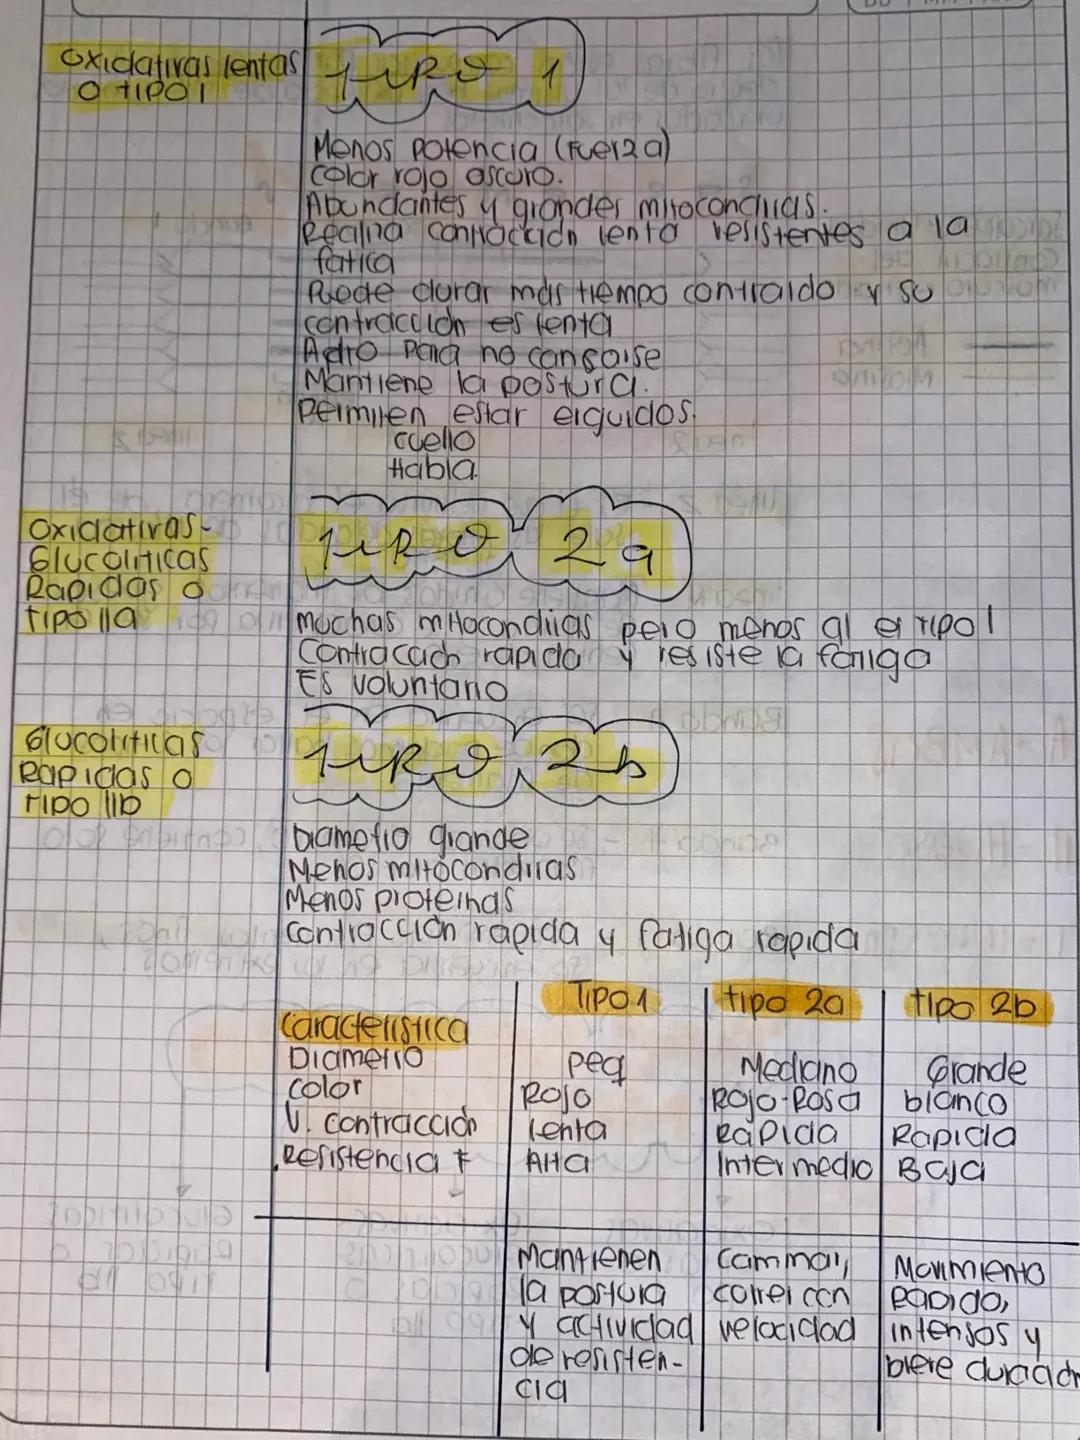 oxidativas lentas
o tipo I
Tipo 1
Menos potencia (fuerza)
color rojo oscuro.
Abundantes y grandes mitocondrias.
Realiza contracción lenta resistentes a la
fatica
Puede durar más tiempo contraido y su
contracción es lenta
para no cansarse
Mantiene la postura.
Permiten estar erguidos.
cuello
Habla
oxidativas-
Glucoliticas
Rapidas o
tipo IIa
Tipo 2a
muchas mitocondrias pero menos al tipo I
Contracción rapida y resiste la fatiga
Es voluntario
Glucoliticas
Rapidas o
tipo IIb
Tipo 2b
Diametro grande
Menos mitocondrias
Menos proteinas
contracción rapida y fatiga rapida
Tipo 1 tipo 2a tipo 2b
Caracteristica
Diametro peq Mediano Grande
color Rojo Rojo-Rosa blanco
V. contracción lenta Rapida Rapida
Resistencia F Alta Intermedio Baja
Mantienen caminar, Movimiento
la postura correr con rapido,
y actividad velocidad intensos y
de resisten- breve duración
cia